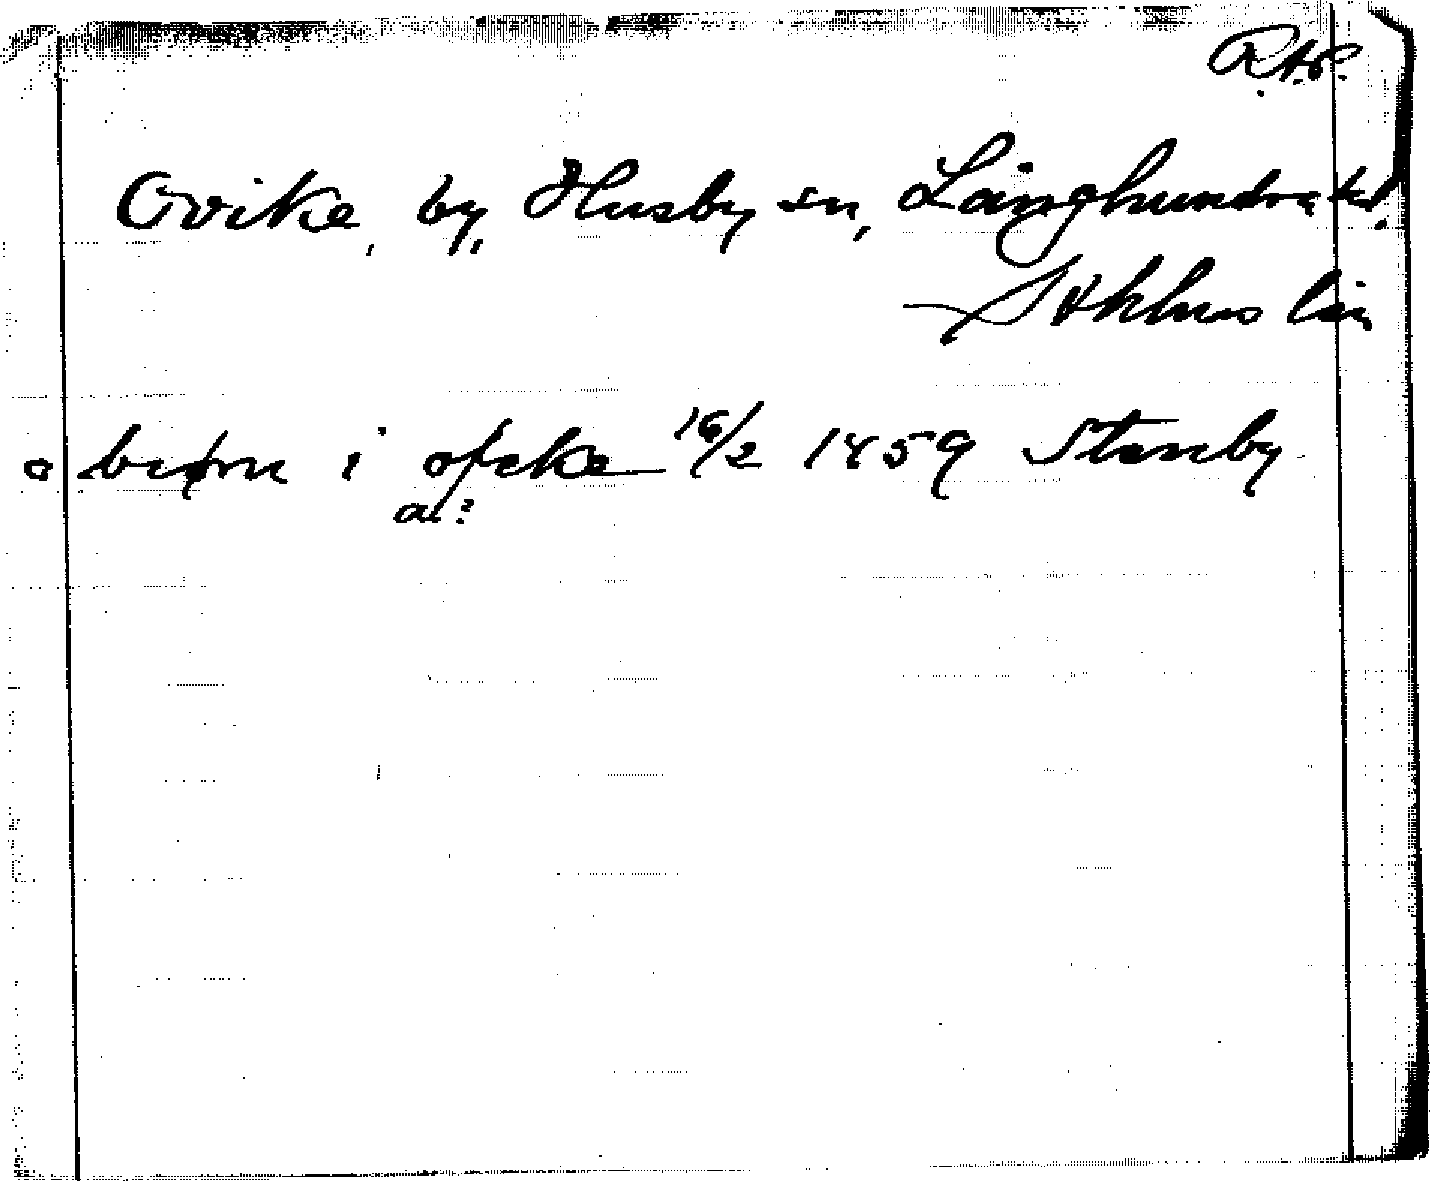 R.A.P.
Ovike, by, Husby sn, Långhundra hd.
Sthlms län
o biørn i ofvke 16/2 1459 Stenby
a?